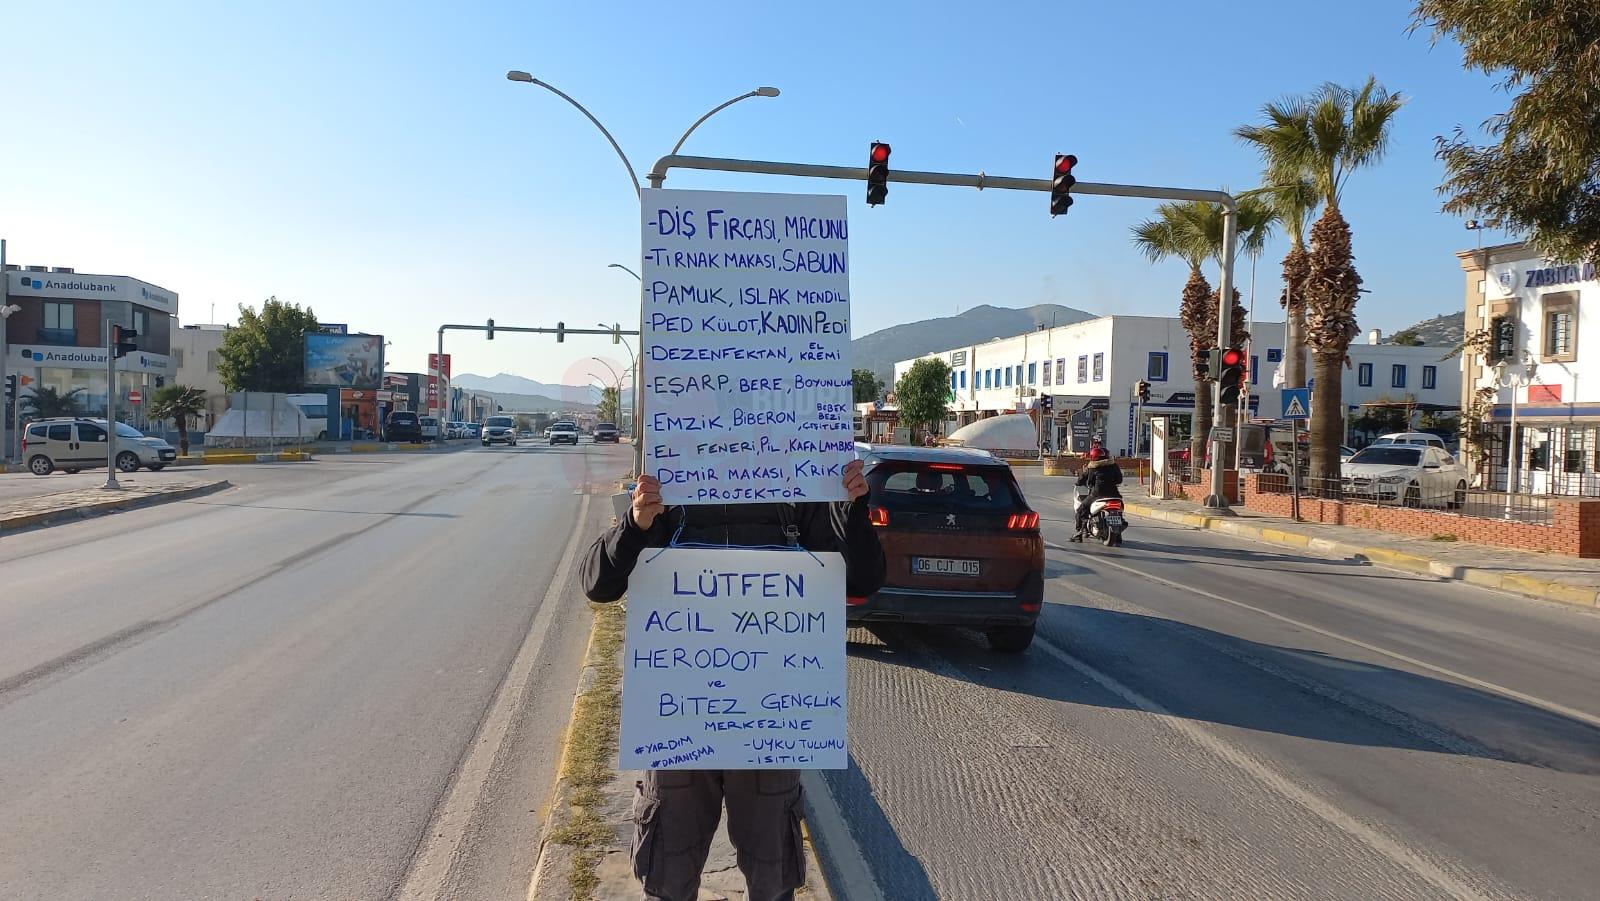 -DİŞ FIRÇASI, MACUNU
-TIRNAK MAKASI, SABUN
-PAMUK, ISLAK MENDİL
-PED KÜLOT, KADIN PEDİ
-DEZENFEKTAN, EL KREMİ
-EŞARP, BERE, BOYUNLUK
-EMZİK, BİBERON BEBEK BEZİ, ÇEŞİTLERİ
-EL FENERİ, PİL, KAFA LAMBASI
DEMİR MAKASI, KRİKO
-PROJEKTÖR
LÜTFEN
ACİL YARDIM
HERODOT K.M.
ve
BİTEZ GENÇLİK
MERKEZİNE
#YARDIM
#DAYANIŞMA
-UYKU TULUMU
-ISITICI
Anadolubank
Anadolubank
ZABITA
PEUGEOT
06 CJT 015